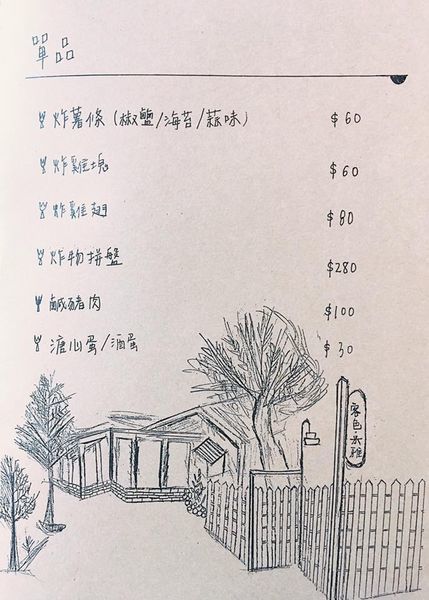 單品
炸薯條(椒鹽/海苔/蒜味) $60
炸雞塊 $60
炸雞翅 $80
炸物拼盤 $280
鹹豬肉 $100
溏心蛋/酒蛋 $30